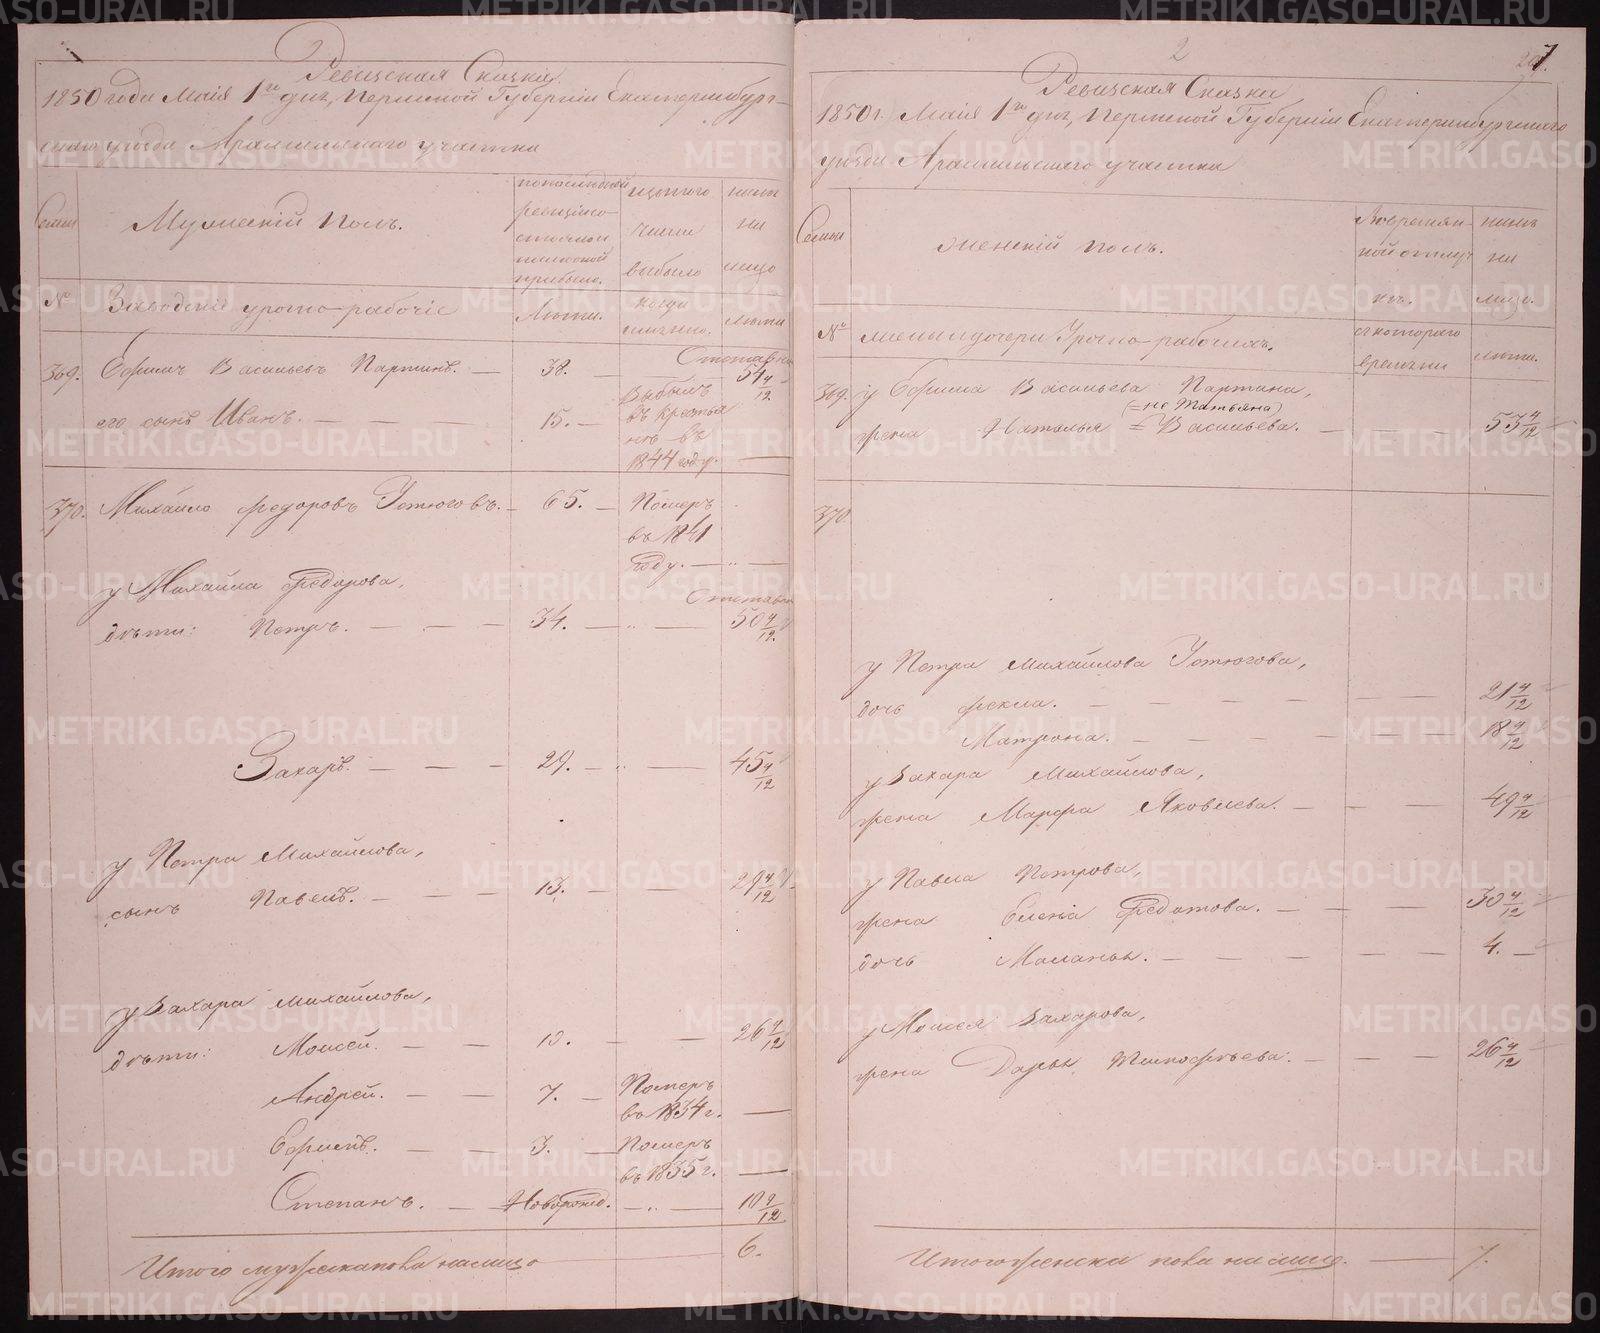 2
Ревизская Сказка
1850 года Маія 1го дня, Пермской Губерніи Екатеринбург-
скаго уѣзда Арамильскаго участка
Семьи
Мужескій полъ.
по послѣдней
ревизіи
состояло
и послѣ оной
прибыло.
изъ того
числа
выбыло
нынѣ
на
лицо
№
Заводскіе урочно-рабочіе
Лѣта.
когда
именно.
лѣта
369.
Ефимъ Васильевъ Партинъ.
38.
Отставн
54 4/12
его сынъ Иванъ.
15.
Выбылъ
въ крестья
нѣ въ
1844 году.
370.
Михайло Федоровъ Устюговъ.
65.
Померъ
въ 1841
году.
у Михайла Федорова,
дѣти: Петръ.
34.
Отставн
50 4/12
Захаръ.
29.
45 4/12
у Петра Михайлова,
сынъ Павелъ.
13.
29 4/12
у Захара Михайлова,
дѣти: Моисей.
10.
26 4/12
Андрей.
7.
Померъ
въ 1834 г.
Ефимъ.
3.
Померъ
въ 1835 г.
Степанъ.
Новорожд.
10 9/12
Итого мужеска пола на лицо
6.
2
7.
Ревизская Сказка
1850 г. Маія 1го дня, Пермской Губерніи Екатеринбургскаго
уѣзда Арамильскаго участка
Семьи
Женскій полъ.
Во времян-
ной отлуч-
кѣ.
нынѣ
на
лицо.
№
жены и дочери Урочно-рабочихъ.
съ котораго
времени
лѣта.
369.
у Ефима Васильева Партина,
(= не Татьяна)
жена Наталья = Васильева.
53 4/12
370
у Петра Михайлова Устюгова,
дочь Фекла.
21 4/12
Матрона.
18 9/12
у Захара Михайлова,
жена Марфа Яковлева.
49 4/12
у Павла Петрова,
жена Еленіа Федотова.
30 4/12
дочь Маланья.
4.
у Моисея Захарова,
жена Дарья Тимофѣева.
26 4/12
Итого женска пола на лицо.
7.
METRIKI.GASO-URAL.RU